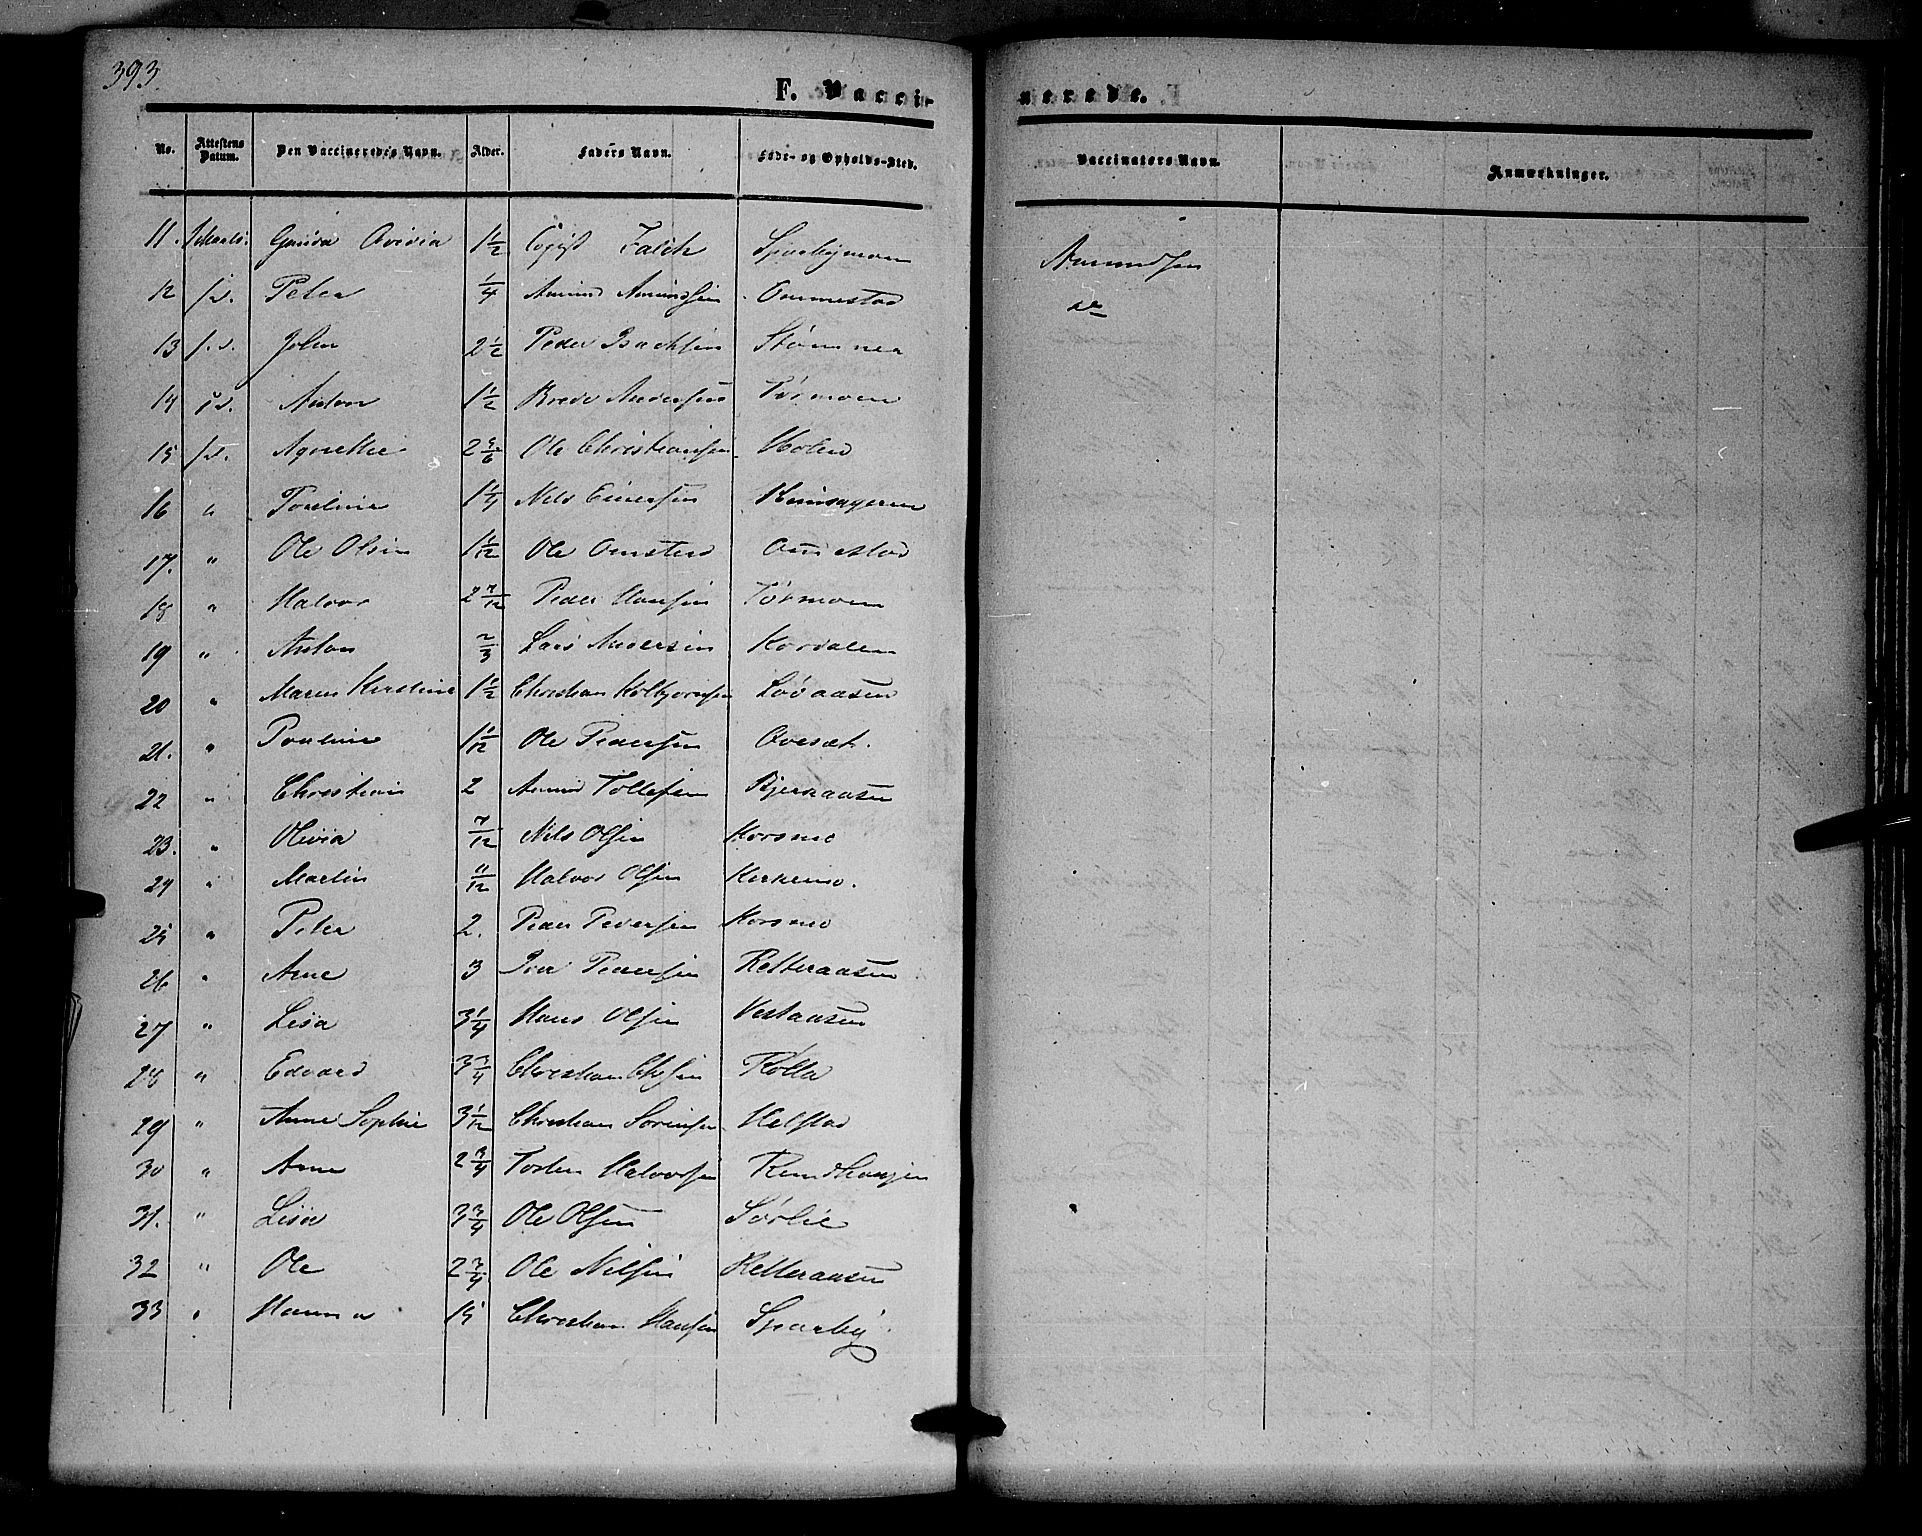 393.
F. Vacci-
nerede.
No. Attestens Datum. Den Vaccineredes Navn. Alder. Faders Navn. Føde- og Opholds-Sted.
Vaccinators Navn. Anmærkninger.
11. 1½ Falch Sparbymoen Amundsen
12 Peter ¼ Amund Amundsen Ommestad do
13 Johan 2½ Peder Isachsen
14 Anton 1½ Andersen Tørmoen
15 Agnethe Ole Christiansen Holen
16 " 1¼ Nils Einersen
17. " Ole Olsen 1 1/12 Ole Omsted
18 " Halvor 2 7/12 Peder Hansen Tørmoen
19 " Anton 2/3 Lars Andersen Kordalen
20 " Maren Kirstine 1½ Christian Kolbjørnsen Løvaasen
21. " Pouline 1 1/12 Ole Pedersen
22 " Christian 2 Amund Tollefsen Bjerkaasen
23. " Olivia 7/12 Nils Olsen Korsmo
24 " Martin 11/12 Halvor Olsen Kerkemo.
25 " Peter 2. Peder Pedersen Korsmo
26 " Arne 3 Pedersen Retteraasen
27 " Lisa 3¼ Hans Olsen Vestaasen
28 " Edvard 3¾ Christian Rolla
29 " Anne Sophie 3 1/12 Christian Sørensen Helstad
30 " Arne 2¾ Torsten Halvorsen
31. " Lisa 3¾ Ole Olsen Sørlie
32 " Ole 2¾ Ole Nilsen Retteraasen
33 " Hanna 15 Christian Hansen Sparby